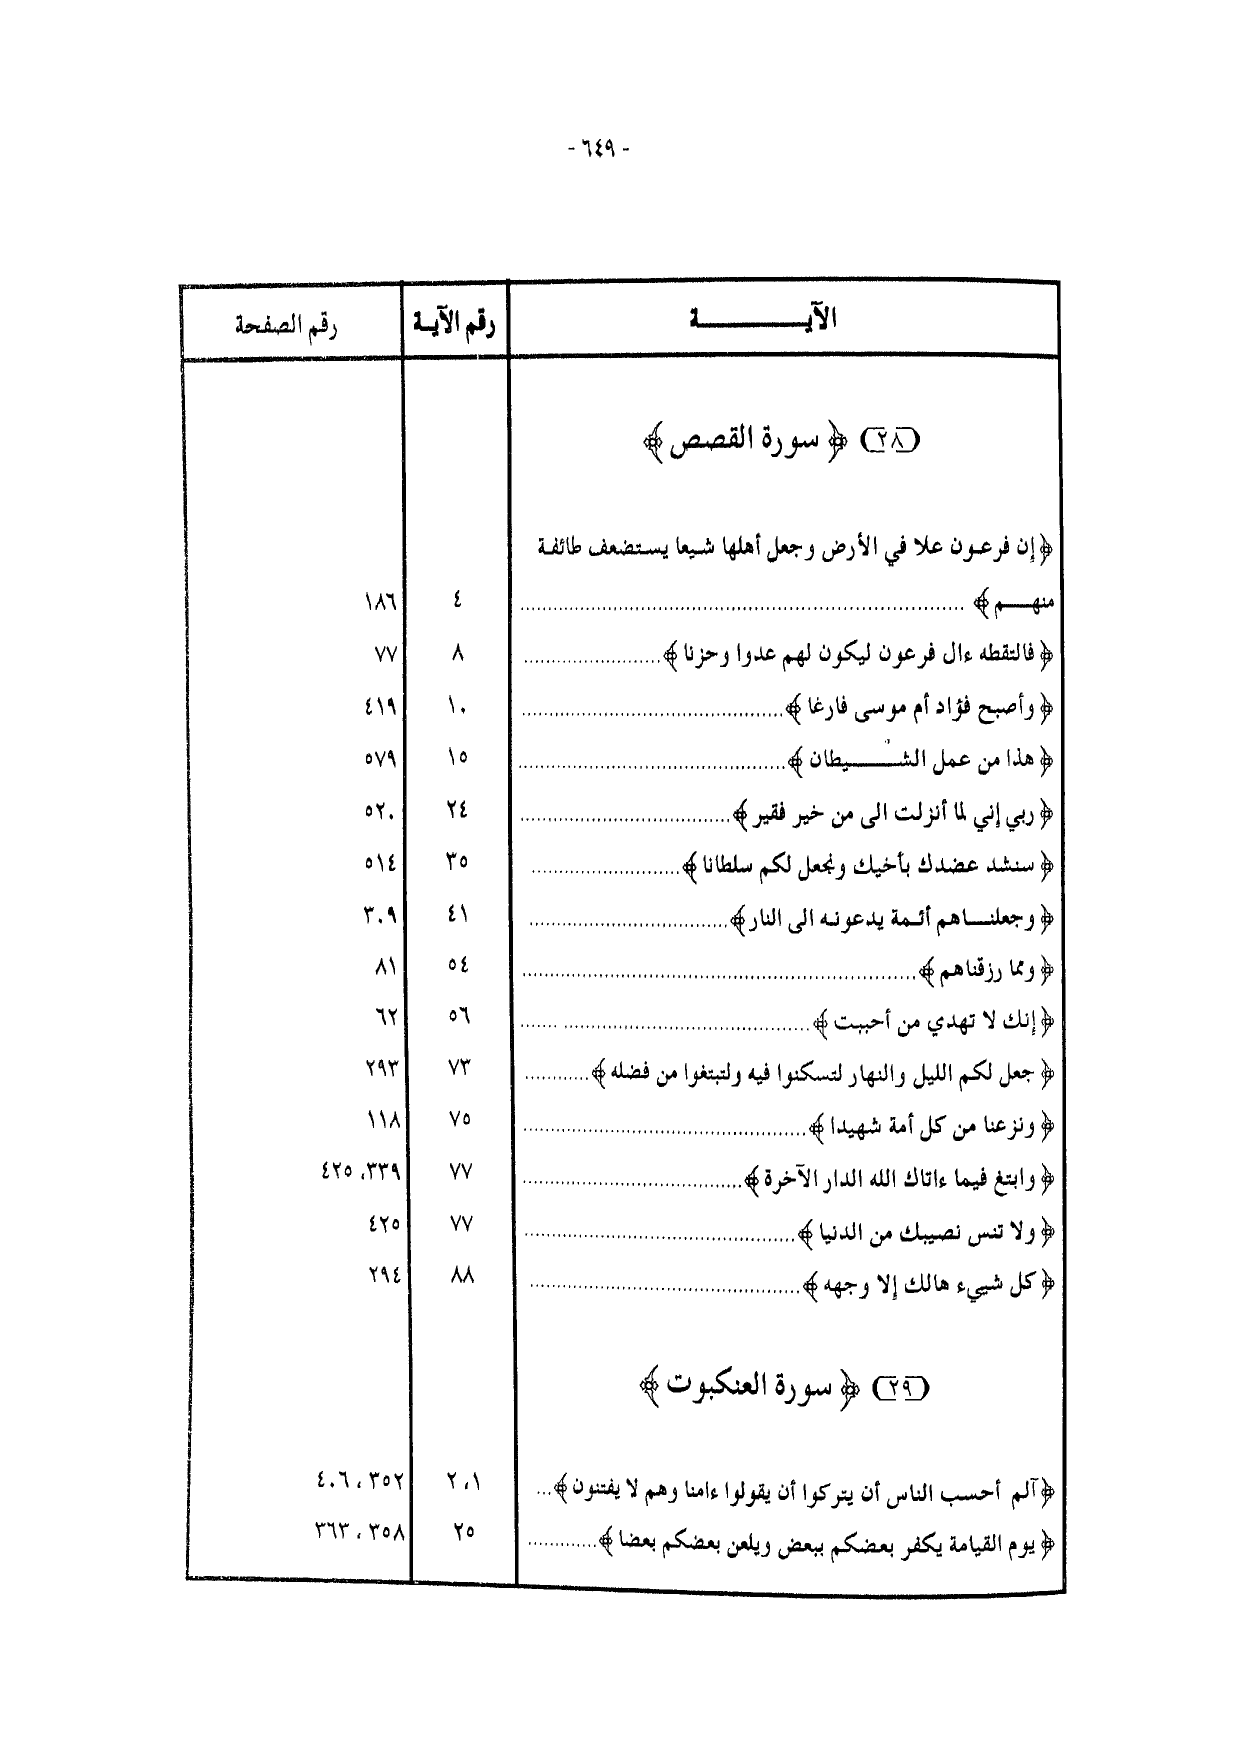 - ٦٤٩ -
الآيــــــــة	رقم الآيـة	رقم الصفحة
(٢٨) ﴿ سورة القصص ﴾
﴿ إن فرعـون علا في الأرض وجعل أهلها شـيعا يسـتضعف طائفـة
منهـــم ﴾ ........	٤	١٨٦
﴿ فالتقطه ءال فرعون ليكون لهم عدوا وحزنا ﴾ ........	٨	٧٧
﴿ وأصبح فؤاد أم موسى فارغا ﴾ ........	١٠	٤١٩
﴿ هذا من عمل الشـــــيطان ﴾ ........	١٥	٥٧٩
﴿ ربي إني لما أنزلت الى من خير فقير ﴾ ........	٢٤	٥٢٠
﴿ سنشد عضدك بأخيك ونجعل لكم سلطانا ﴾ ........	٣٥	٥١٤
﴿ وجعلنـــاهم أئـمة يدعونـه الى النار ﴾ ........	٤١	٣٠٩
﴿ ومما رزقناهم ﴾ ........	٥٤	٨١
﴿ إنك لا تهدي من أحببت ﴾ ........	٥٦	٦٢
﴿ جعل لكم الليل والنهار لتسكنوا فيه ولتبتغوا من فضله ﴾ ........	٧٣	٢٩٣
﴿ ونزعنا من كل أمة شهيدا ﴾ ........	٧٥	١١٨
﴿ وابتغ فيما ءاتاك الله الدار الآخرة ﴾ ........	٧٧	٣٣٩، ٤٢٥
﴿ ولا تنس نصيبك من الدنيا ﴾ ........	٧٧	٤٢٥
﴿ كل شييء هالك إلا وجهه ﴾ ........	٨٨	٢٩٤
(٢٩) ﴿ سورة العنكبوت ﴾
﴿ آلم أحسب الناس أن يتركوا أن يقولوا ءامنا وهم لا يفتنون ﴾ ...	١، ٢	٣٥٢، ٤٠٦
﴿ يوم القيامة يكفر بعضكم ببعض ويلعن بعضكم بعضا ﴾ ........	٢٥	٣٥٨، ٣٦٣